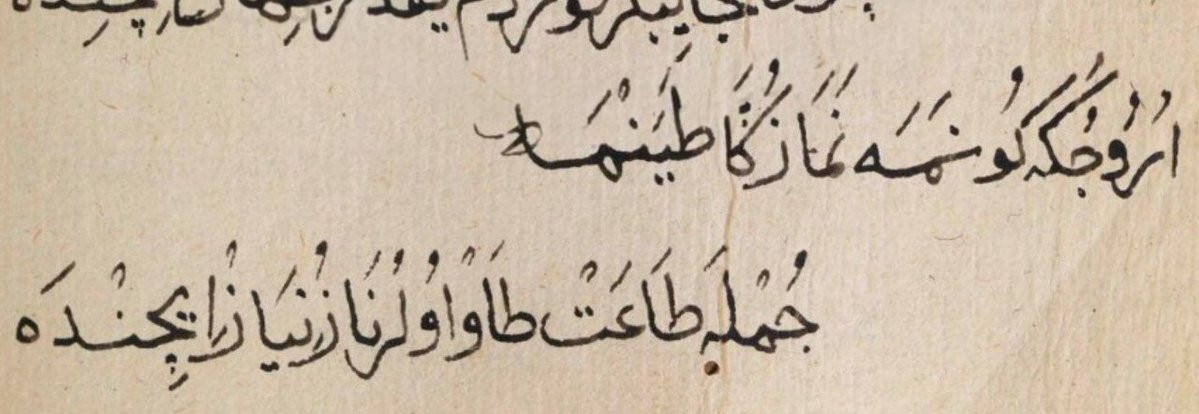 اُرُوجُكَه كُونمَه نَمَازُكَا طَيَنْمَه
جُمْلَه طَاعَتْ طَاوْ اوُلُرْ نَازُ نِيَازْ اِيچِنْدَه